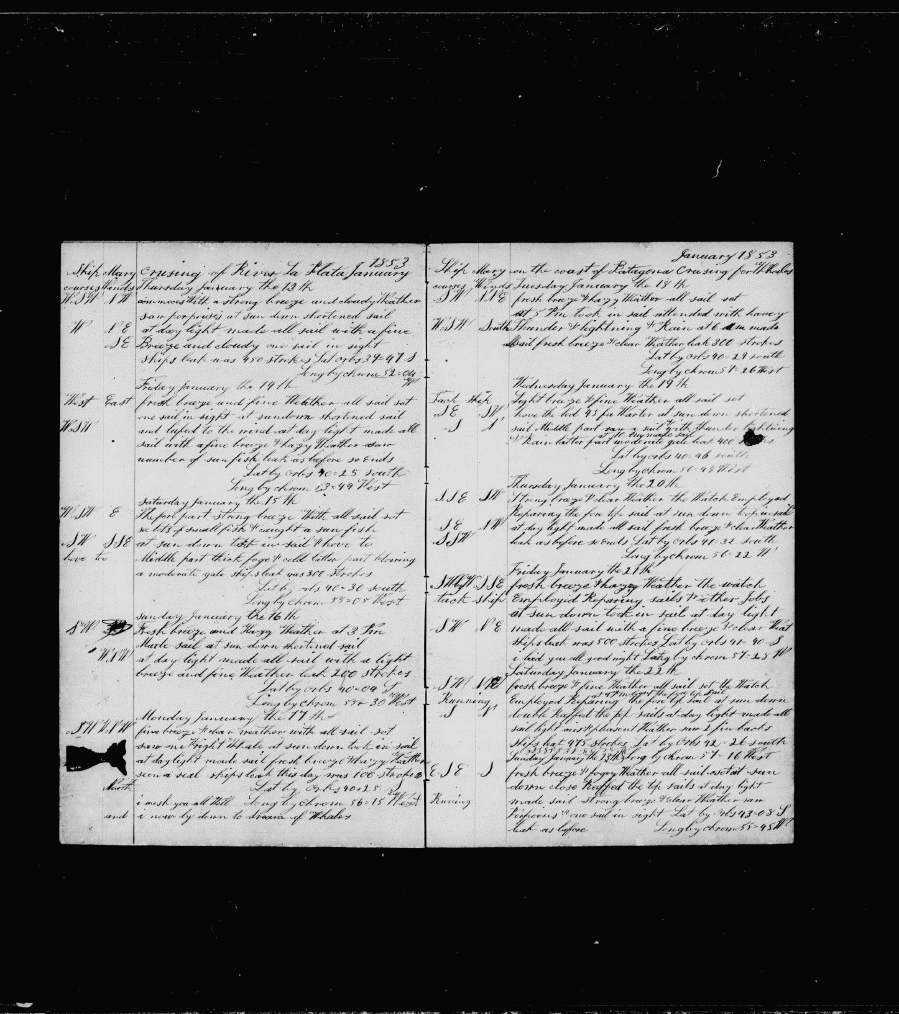 1853
Ship Mary Crusing of River La Plata January
courses Winds Thursday January the 13th
WSW NW commences With a strong breeze and cloudy Weather
saw porpoises at sun down shortened sail
W NE at day light made all sail with a fine
SE Breeze and cloudy one sail in sight
Ships leak was 450 strokes Lat by orbs 39-47 S
Long by chrom 52-04 W
Friday January the 14th
West East fresh breeze and fine Weather all sail set
one sail in sight at sundown shortened sail
WSW and to the wind at day light made all
sail with a fine breeze & hazy Weather saw
number of sun fish leak as before so Ends
Lat by orbs 40-25 south
Long by chrom 53-44 West
Saturday January the 15th
WSW E The first part strong breeze With all sail set
see lots of small fish & caught a sun fish
SW SSE at sun down took in sail & hove to
hove too Middle part thick foge & cold latter part blowing
a moderate gale ships leak was 300 strokes
Lat by orbs 40-30 south
Long by chrom 53-05 West
Sunday January the 16th
SW Fresh breeze and Hazy Weather at 3 Pm
Made sail at sun down shortened sail
WNW at day light made all sail with a light
breeze and fine Weather leak 200 strokes
Lat by orbs 40-04 S
Long by chrom 54-30 West
Monday January the 17th
SW WNW fine breeze & clear weather with all sail set
saw one Wright Whale at sun down took in sail
at day light made sail fresh breeze & hazy Weather
seen a seal ships leak this day was 100 strokes
North Lat by Orbs 40-25
i wish you all Well Long by chrom 56-15 West
and i now ly down to dream of Whales
January 1853
Ship Mary on the coast of Patagona Crusing for Whales
courses Winds Tuesday January the 18th
SW NNE fresh breeze & hazy Weather all sail set
at 5 Pm took in sail attended with heavy
WSW South Thunder & lightning & Rain at 6 am made
sail fresh breeze & clear Weather leak 300 strokes
Lat by orbs 40-29 south
Long by chrom 57-26 West
Wednesday January the 19th
Tack Ship Light breeze & fine Weather all sail set
SE SW hove the led 45 fm Warter at sun down shortened
S N sail Middle part saw a sail with thunder lightning
at day made sail
& Rain latter part moderate gale leak 400
Lat by orbs 40-46 south
Long by chrom 56-48 West
Thursday January the 20th
SSE SW Strong breeze & clear Weather the Watch Employed
Repairing the fore top sail at sun down took in sail
SE NW at day light made all sail fresh breeze & clear Weather
SSW leak as before so Ends Lat by orbs 41-32 south
Long by chrom 56-22 W
Friday January the 21th
SSE fresh breeze & hazy Weather the watch
tack ship Employed Repairing sails & other Jobs
at sun down took in sail at day light
SW NE made all sail with a fine breeze & clear Weat
Ships leak was 500 strokes Lat by orbs 41-40 S
i bid you all good night Long by chrom 57-28 W
Saturday January the 22th
SW NE fresh breeze & fine Weather all sail set the Watch
Running Employed Repairing the fore top sail at sun down
S N double Reeffed the top sails at day light made all
sail light mist & pleasent Weather saw 2 fin backs
Ships leak 475 strokes Lat by Orbs 42-26 south
Sunday January the 23th Long by chrom 57-16 West
ESE S fresh breeze & foggy Weather all sail set at sun
down close Reeffed the top sails at day light
Runing made sail strong breeze & clear Weather saw
Porpoises & one sail in sight Lat by Orbs 43-08 S
leak as before Long by chrom 55-45 W